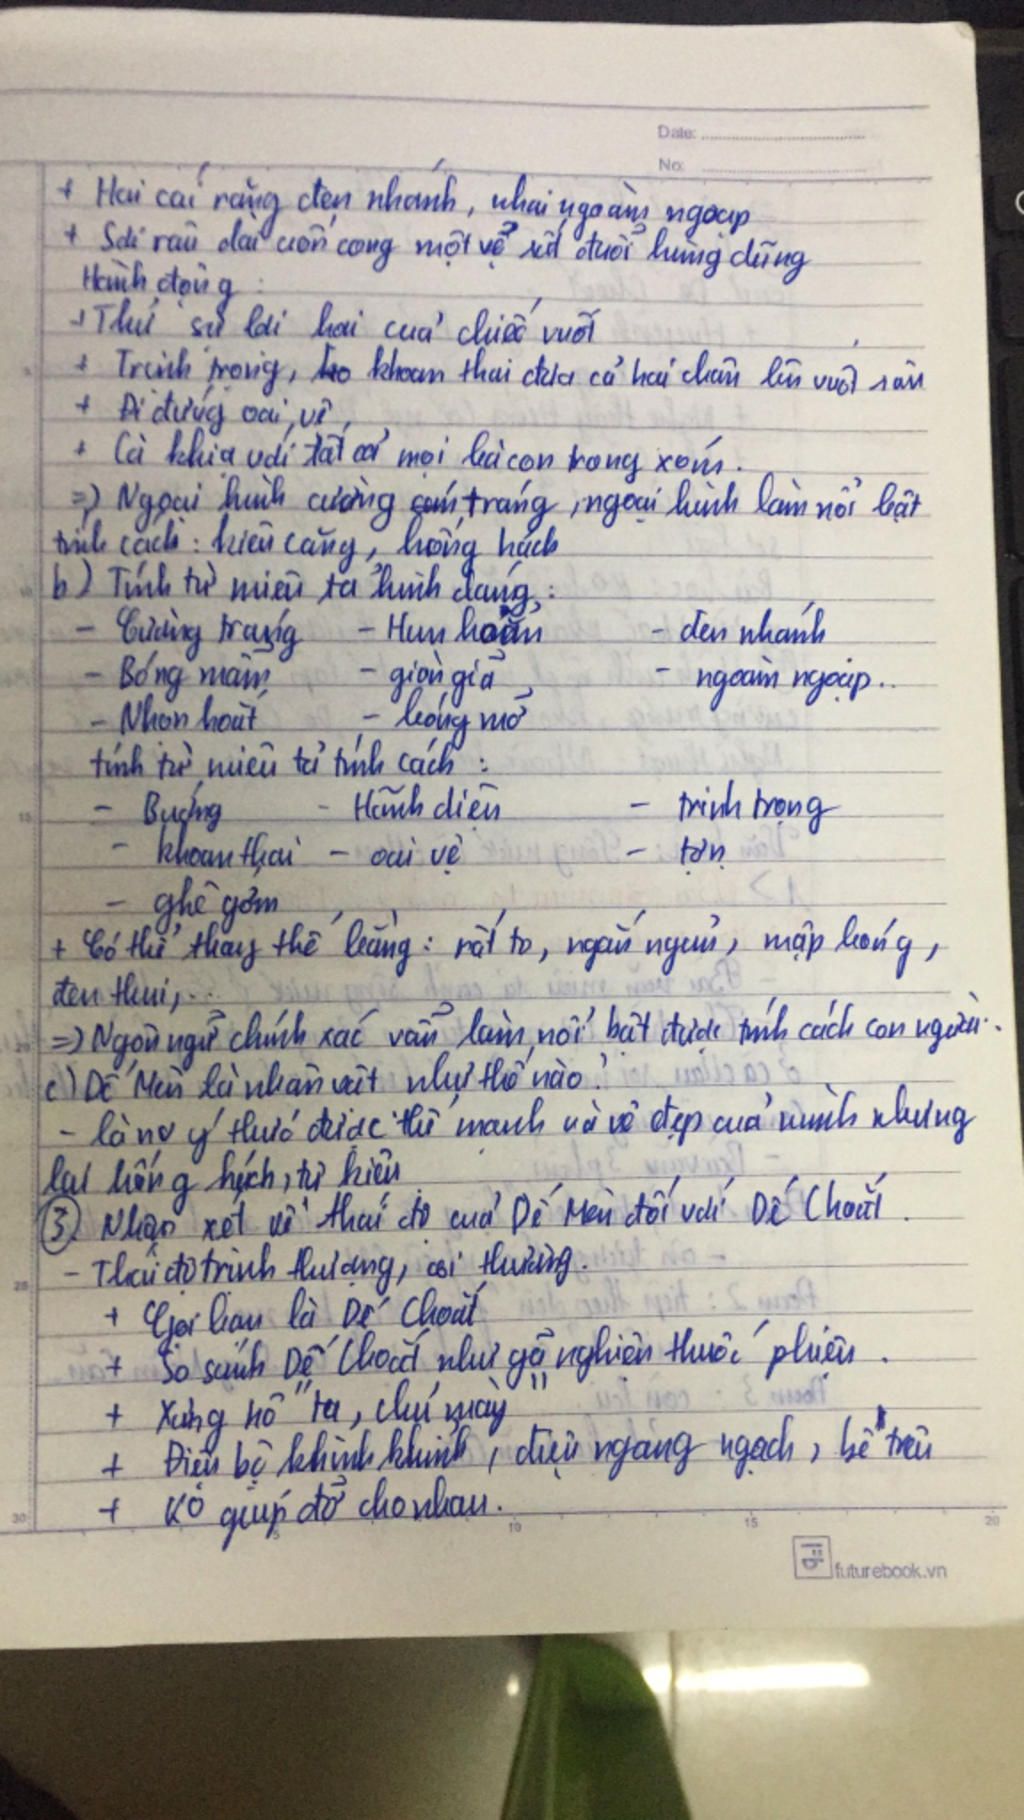 Date:
No:
+ Hai cái răng đen nhánh, nhai ngoàm ngoạp
+ Sợi râu dài uốn cong một vẻ rất đuổi hùng dũng
Hành động :
+ Thử sự lợi hại của chiếc vuốt
+ Trịnh trọng, khoan thai đưa cả hai chân lên vuốt râu
+ Đi đứng oai vệ
+ Cà khịa với tất cả mọi bà con trong xóm.
=> Ngoại hình cường tráng, ngoại hình làm nổi bật
tính cách : kiêu căng, hống hách
b) Tính từ miêu tả hình dáng :
- Cường tráng - Hun hoẳn - đen nhánh
- Bóng mẫm - giòn giã - ngoàm ngoạp..
- Nhọn hoắt - bóng mỡ
tính từ miêu tả tính cách :
- Bướng - Hãnh diện - trịnh trọng
- khoan thai - oai vệ - tợn
- ghê gớm
+ Có thể thay thế bằng : rất to, ngắn ngủn, mập bóng,
đen thui,...
=> Ngôn ngữ chính xác vẫn làm nổi bật được tính cách con người.
c) Dế Mèn là nhân vật như thế nào?
- là nv ý thức được thế mạnh và vẻ đẹp của mình nhưng
lại hống hách, tự kiêu
③ Nhận xét về thái độ của Dế Mèn đối với Dế Choắt.
- Thái độ trịnh thượng, coi thường.
+ Gọi bạn là Dế Choắt
+ So sánh Dế Choắt như gã nghiện thuốc phiện.
+ Xưng hô "ta, chú mày"
+ Điệu bộ khinh khỉnh, điệu ngang ngạch, bề trên
+ Ko giúp đỡ cho nhau.
15
20
25
30
5
10
15
20
futurebook.vn